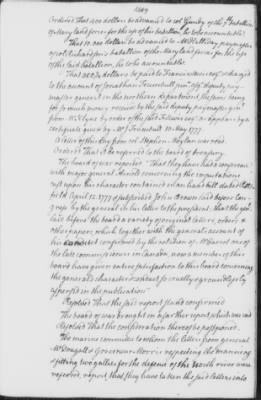 Ordered That 400 dollars be advanced to col Gunby of the 7 battalion
of Maryland forces for the use of his battalion, he to be accountable
That 10.000 dollars be advanced to Mr paymaster
of col Richardson's battalion of the Maryland forces for the use
of the said battalion, he to be accountable
That dollars be paid to Francis & charged
to the account of Jonathan Trumbull junr esqr deputy pay-
master general in the northern department, the same being
for so much money received by the said deputy paymaster genl
from by order of the said as appears by a
certificate given by Mr Trumbull 10 May 1777
A letter of this day from col Stephen Moylan was read
Ordered That it be referred to the board of treasury
The board of war reported "That they have had a conference
with major general Arnold concerning the imputations
cast upon his character contained in an hand bill dated Pitts-
field April 12. 1777 & subscribed John Brown laid before Con-
gress by the general in his letter to the president that the genl
laid before the board a variety of original letters, orders &
other papers, which together with the general's account of
his conduct confirmed by the relation of Mr Carrol one of
the late commissioners in Canada, now a member of this
board have given entire satisfaction to this board concerning
the general's character & conduct so cruelly & groundlessly
aspersed in the publication"
Resolved That the said report be and confirmed
The board of war brought in a farther report which was read
Resolved That the consideration thereof be postponed.
The marine committee to whom the letters from general
McDougall & Governour Morris respecting the manning
& fitting two gallies for the defence of the North river were
referred, report, that they have taken the said letters into